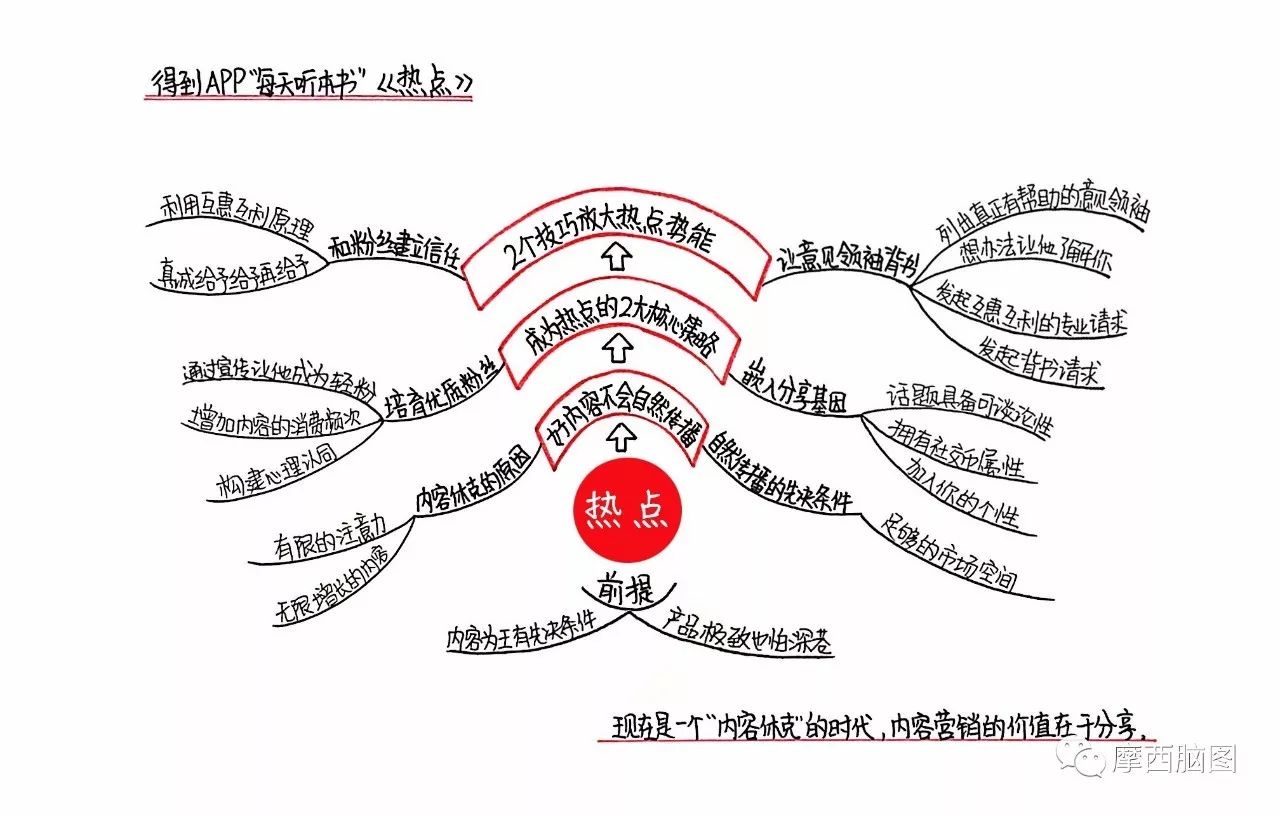 得到APP“每天听本书”《热点》
2个技巧放大热点势能
和粉丝建立信任
利用互惠互利原理
真成给予给予再给予
让意见领袖背书
列出真正有帮助的意见领袖
想办法让他了解你
发起互惠互利的专业请求
发起背书请求
成为热点的2大核心策略
培育优质粉丝
通过宣传让他成为轻粉
增加内容的消费频次
构建心理认同
嵌入分享基因
话题具备可谈论性
拥有社交币属性
加入你的个性
好内容不会自然传播
内容休克的原因
有限的注意力
无限增长的内容
自然传播的先决条件
足够的市场空间
热点
前提
内容为王有先决条件
产品极致也怕深巷
现在是一个“内容休克”的时代,内容营销的价值在于分享.
摩西脑图